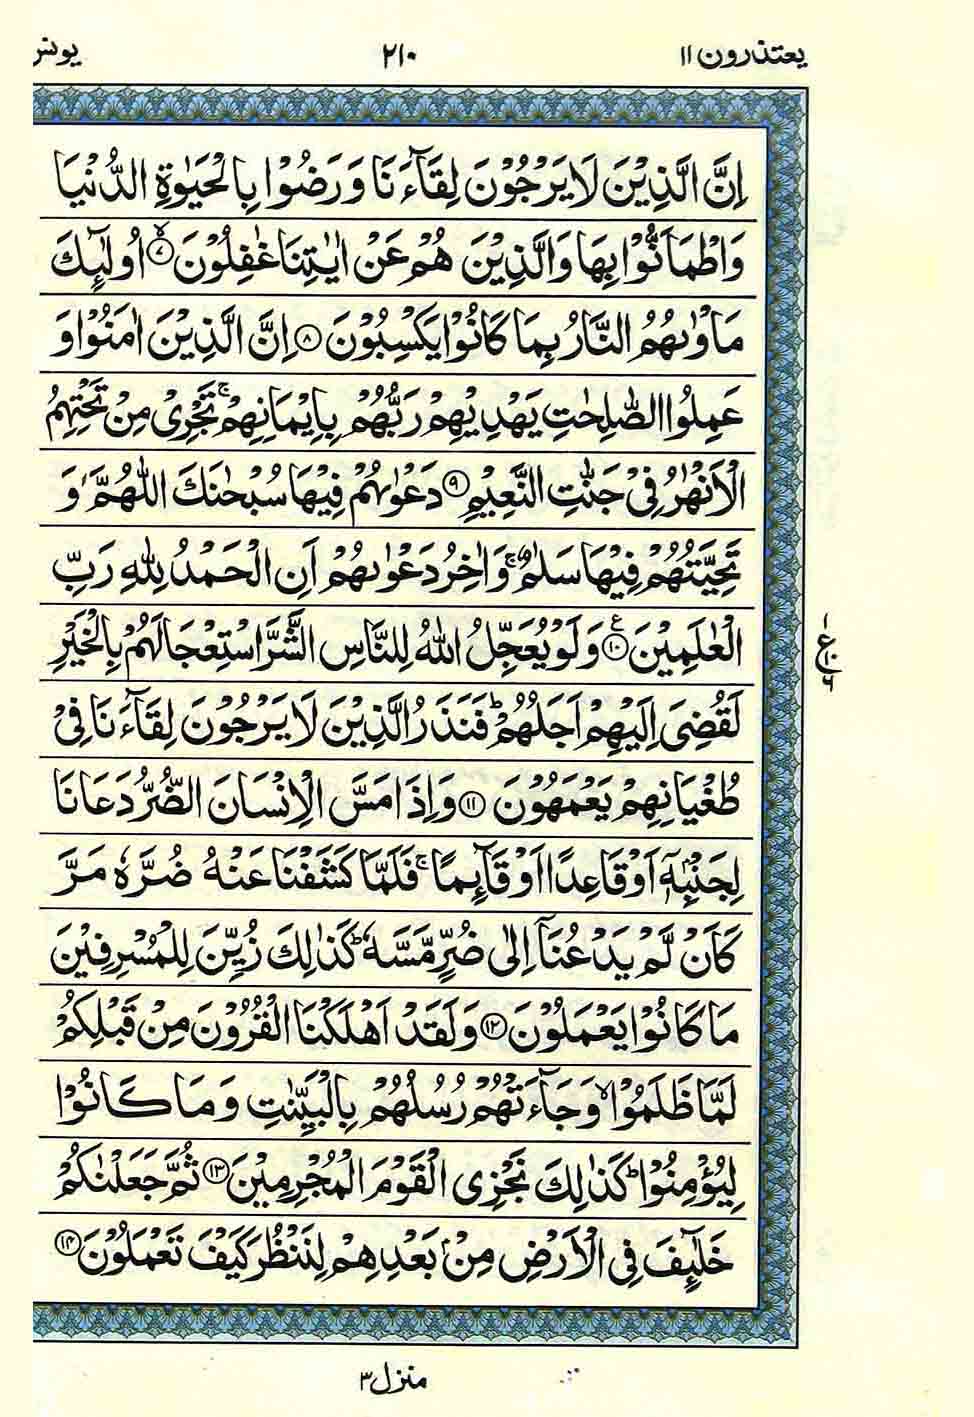 يعتذرون ١١ ٢١٠ يونس
اِنَّ الَّذِيْنَ لَا يَرْجُوْنَ لِقَآءَنَا وَرَضُوْا بِالْحَيٰوةِ الدُّنْيَا
وَاطْمَاَنُّوْا بِهَا وَالَّذِيْنَ هُمْ عَنْ اٰيٰتِنَا غٰفِلُوْنَ ۙ﴿٧﴾ اُولٰٓئِكَ
مَاْوٰىهُمُ النَّارُ بِمَا كَانُوْا يَكْسِبُوْنَ ﴿٨﴾ اِنَّ الَّذِيْنَ اٰمَنُوْا وَ
عَمِلُوا الصّٰلِحٰتِ يَهْدِيْهِمْ رَبُّهُمْ بِاِيْمَانِهِمْ ۚ تَجْرِيْ مِنْ تَحْتِهِمُ
الْاَنْهٰرُ فِيْ جَنّٰتِ النَّعِيْمِ ﴿٩﴾ دَعْوٰىهُمْ فِيْهَا سُبْحٰنَكَ اللّٰهُمَّ وَ
تَحِيَّتُهُمْ فِيْهَا سَلٰمٌ ۚ وَاٰخِرُ دَعْوٰىهُمْ اَنِ الْحَمْدُ لِلّٰهِ رَبِّ
الْعٰلَمِيْنَ ﴿١٠﴾ ع وَلَوْ يُعَجِّلُ اللّٰهُ لِلنَّاسِ الشَّرَّ اسْتِعْجَالَهُمْ بِالْخَيْرِ
لَقُضِيَ اِلَيْهِمْ اَجَلُهُمْ ؕ فَنَذَرُ الَّذِيْنَ لَا يَرْجُوْنَ لِقَآءَنَا فِيْ
طُغْيَانِهِمْ يَعْمَهُوْنَ ﴿١١﴾ وَاِذَا مَسَّ الْاِنْسَانَ الضُّرُّ دَعَانَا
لِجَنْۢبِهٖٓ اَوْ قَاعِدًا اَوْ قَآئِمًا ۚ فَلَمَّا كَشَفْنَا عَنْهُ ضُرَّهٗ مَرَّ
كَاَنْ لَّمْ يَدْعُنَآ اِلٰى ضُرٍّ مَّسَّهٗ ؕ كَذٰلِكَ زُيِّنَ لِلْمُسْرِفِيْنَ
مَا كَانُوْا يَعْمَلُوْنَ ﴿١٢﴾ وَلَقَدْ اَهْلَكْنَا الْقُرُوْنَ مِنْ قَبْلِكُمْ
لَمَّا ظَلَمُوْا ۙ وَجَآءَتْهُمْ رُسُلُهُمْ بِالْبَيِّنٰتِ وَمَا كَانُوْا
لِيُؤْمِنُوْا ؕ كَذٰلِكَ نَجْزِي الْقَوْمَ الْمُجْرِمِيْنَ ﴿١٣﴾ ثُمَّ جَعَلْنٰكُمْ
خَلٰٓئِفَ فِي الْاَرْضِ مِنْۢ بَعْدِهِمْ لِنَنْظُرَ كَيْفَ تَعْمَلُوْنَ ﴿١٤﴾
ع
منزل ٣